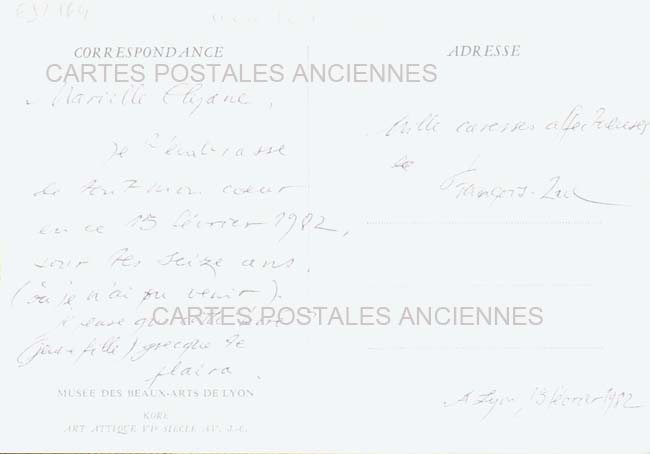 CORRESPONDANCE
ADRESSE
CARTES POSTALES ANCIENNES
Marielle Elyane,
Je t'embrasse
de tout mon coeur
en ce 13 février 1982,
jour tes seize ans.
(où je n'ai pu venir).
J'
(jeune fille) grecque te
plaira.
Mille caresses affectueuses
de
François-Luc
CARTES POSTALES ANCIENNES
MUSÉE DES BEAUX-ARTS DE LYON
KORÉ
ART ATTIQUE VIe SIÈCLE AV. J.-C.
A Lyon, 13 février 1982